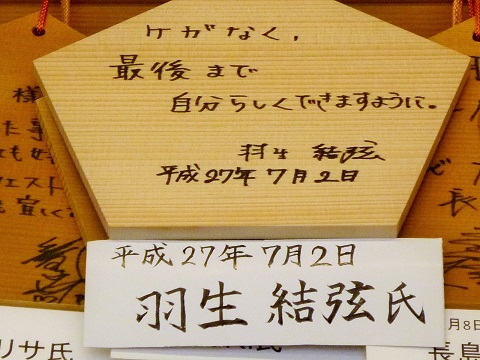 ケガなく、
最後まで
自分らしくできますように。
羽生 結弦
平成27年7月2日
平成27年7月2日
羽生 結弦氏
リサ氏
月8日
長島